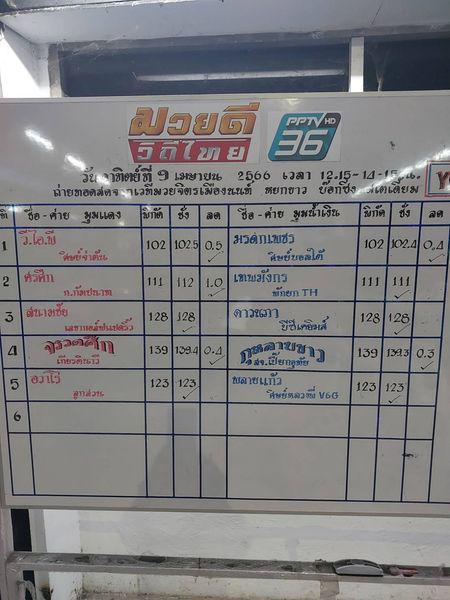 มวยดี
วิถีไทย
PPTV HD
36
วันอาทิตย์ที่ 9 เมษายน 2566 เวลา 12.15-14.15 น.
ถ่ายทอดสดจากเวทีมวยจิตรเมืองนนท์ หยกขาว บ๊อกซิ่ง สเตเดี้ยม
ที่ ชื่อ-ค่าย มุมแดง พิกัด ชั่ง ลด ชื่อ-ค่าย มุมน้ำเงิน พิกัด ชั่ง ลด
1 วี.ไอ.พี 102 102.5 0.5 มรดกเพชร 102 102.4 0.4
ศิษย์จ่าตัน ศิษย์บอลใต้
2 ศรศึก 111 112 1.0 เทพมังกร 111 111
ก.กัมปนาท พักยก TH
3 สนามชัย 128 128 128 128
4 139 139.4 0.4 กุหลาบขาว 139 139.3 0.3
เกียรตินาวี สจ.เปี๊ยกอุทัย
5 123 123 พลายแก้ว 123 123
ลูกสวน
6